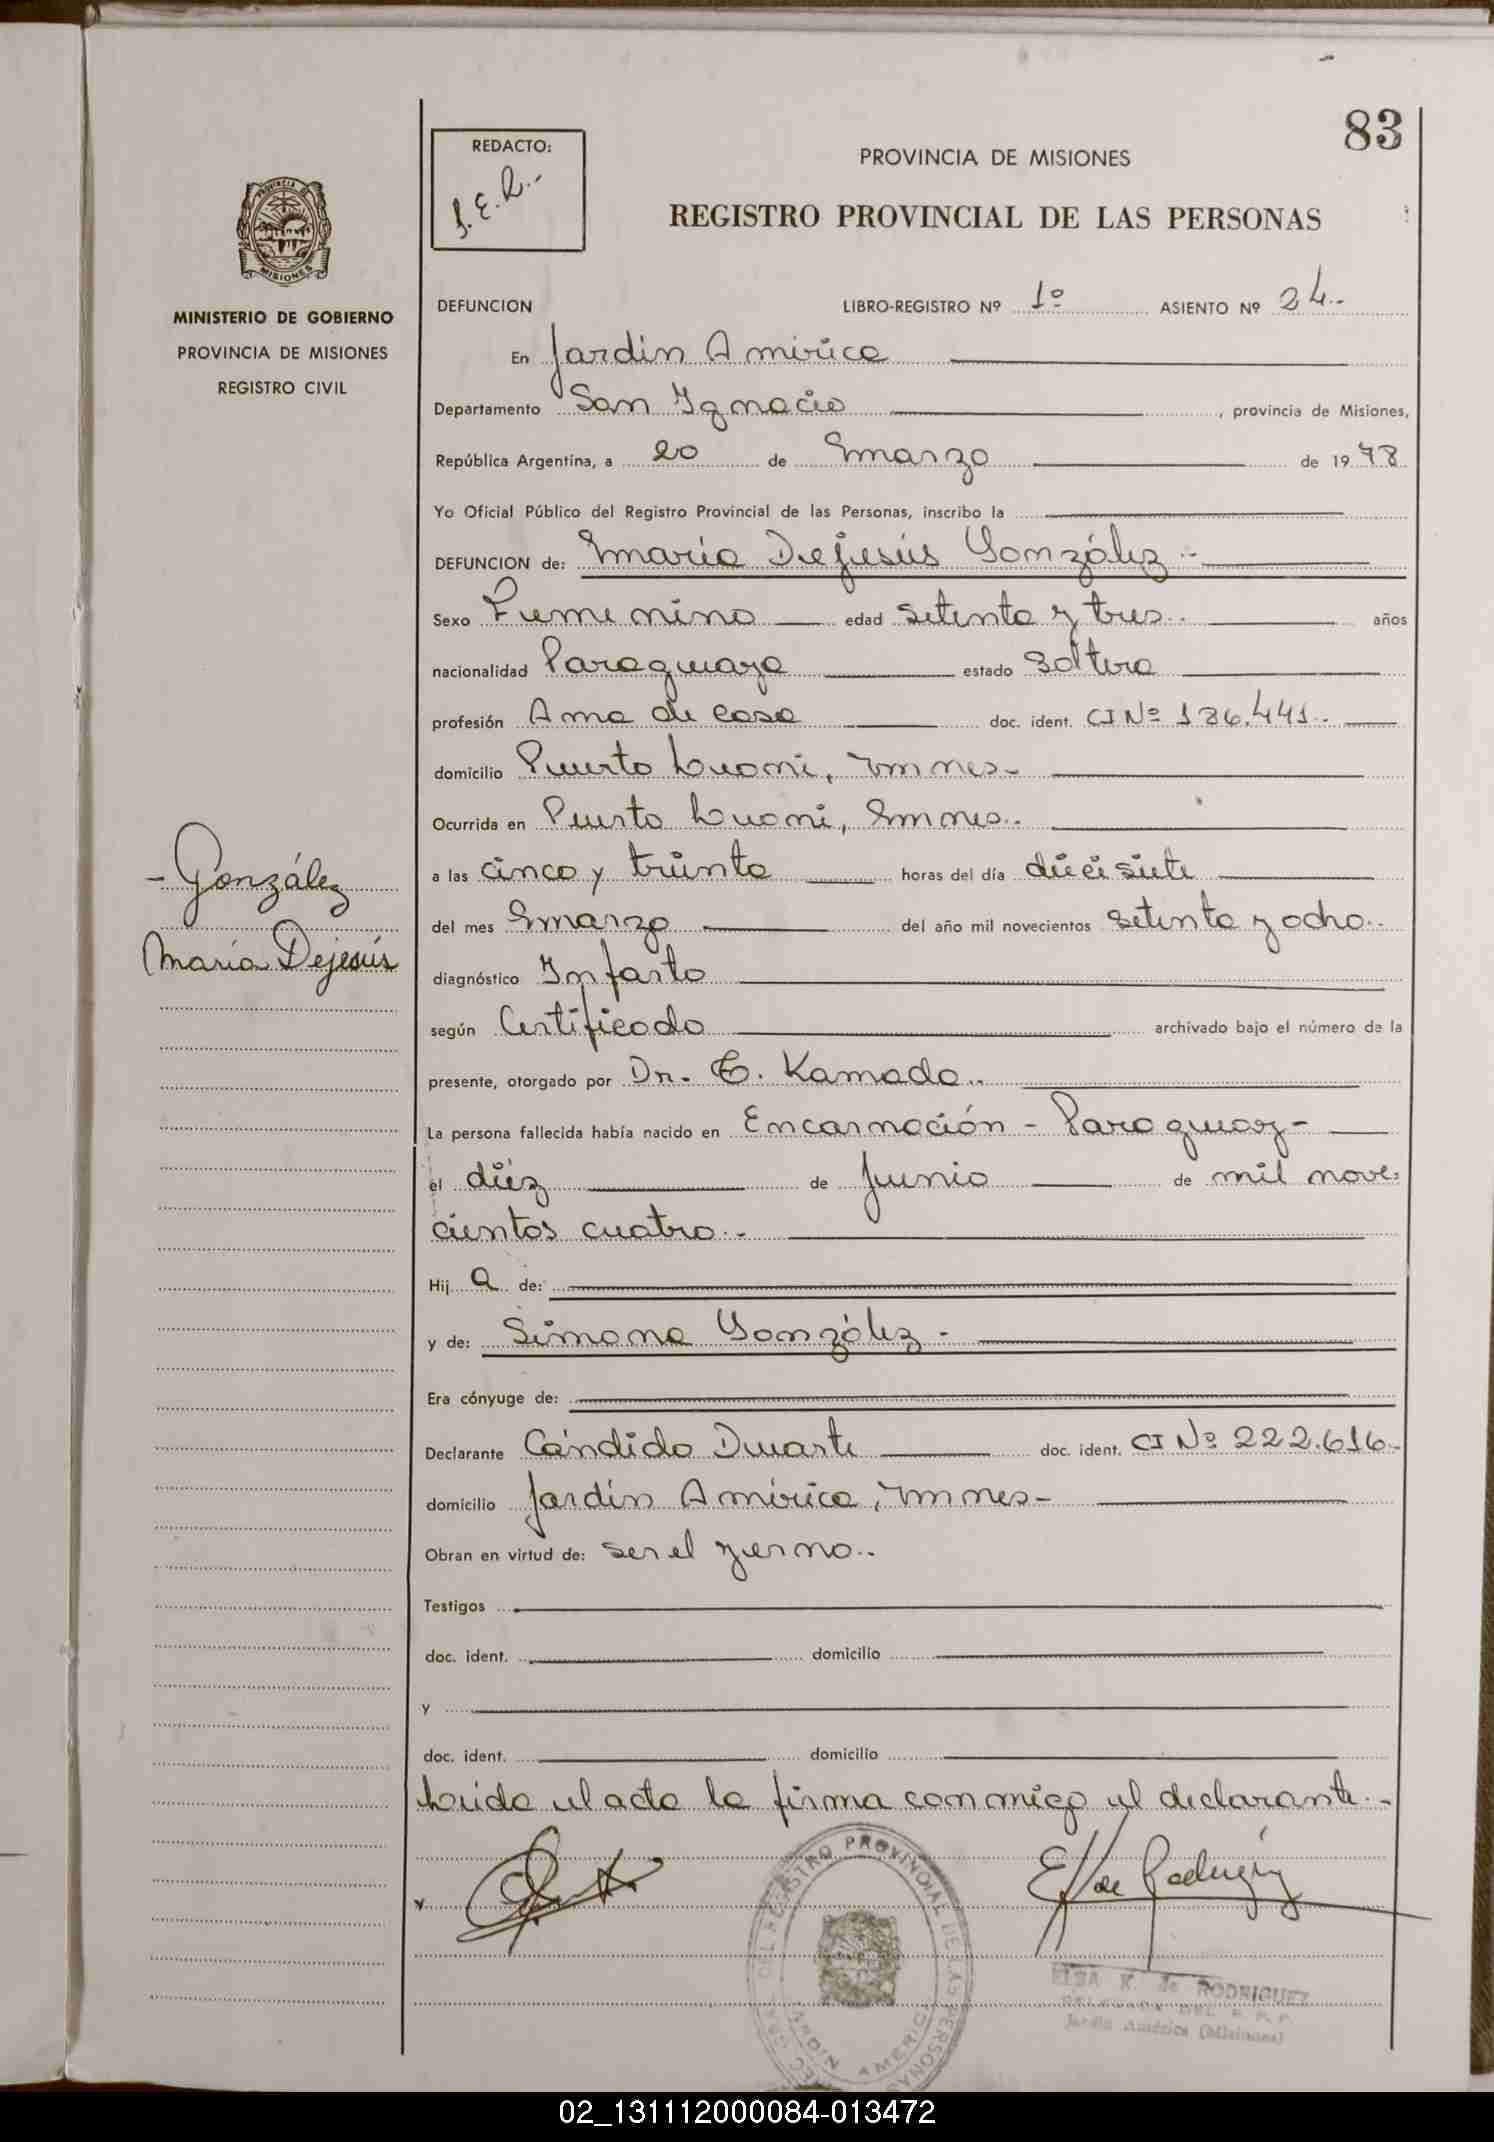 83
REDACTO:
J.E.R.-
PROVINCIA DE MISIONES
REGISTRO PROVINCIAL DE LAS PERSONAS
PROVINCIA DE
MISIONES
MINISTERIO DE GOBIERNO
PROVINCIA DE MISIONES
REGISTRO CIVIL
DEFUNCION LIBRO-REGISTRO Nº 1º ASIENTO Nº 24.-
En Jardín América
Departamento San Ignacio, provincia de Misiones,
República Argentina, a 20 de marzo de 1978
Yo Oficial Público del Registro Provincial de las Personas, inscribo la
DEFUNCION de: María Dejesús González.-
Sexo Femenino edad setenta y tres.. años
nacionalidad Paraguaya estado Soltera
profesión Ama de casa doc. ident. CI Nº 126.441.-
domicilio Puerto Leoni, Mnes-
Ocurrida en Puerto Leoni, Mnes..
- González
María Dejesús
a las cinco y treinta horas del día diecisiete
del mes Marzo del año mil novecientos setenta y ocho..
diagnóstico Infarto
según Certificado archivado bajo el número de la
presente, otorgado por Dr. E. Kamada..
La persona fallecida había nacido en Encarnación - Paraguay-
el diez de Junio de mil nove-
cientos cuatro.-
Hij a de:
y de: Simona González.-
Era cónyuge de:
Declarante Cándido Duarte doc. ident. CI Nº 222.616.-
domicilio Jardín América, Mnes-
Obran en virtud de: ser el yerno..
Testigos
doc. ident. domicilio
y
doc. ident. domicilio
Leida el acta la firma conmigo el declarante.-
DEL REGISTRO PROVINCIAL DE LAS PERSONAS
JARDIN AMERICA
E K de Rodriguez
ELSA K. de RODRIGUEZ
DELEGADA DEL R. P. P.
Jardín América (Misiones)
02_131112000084-013472